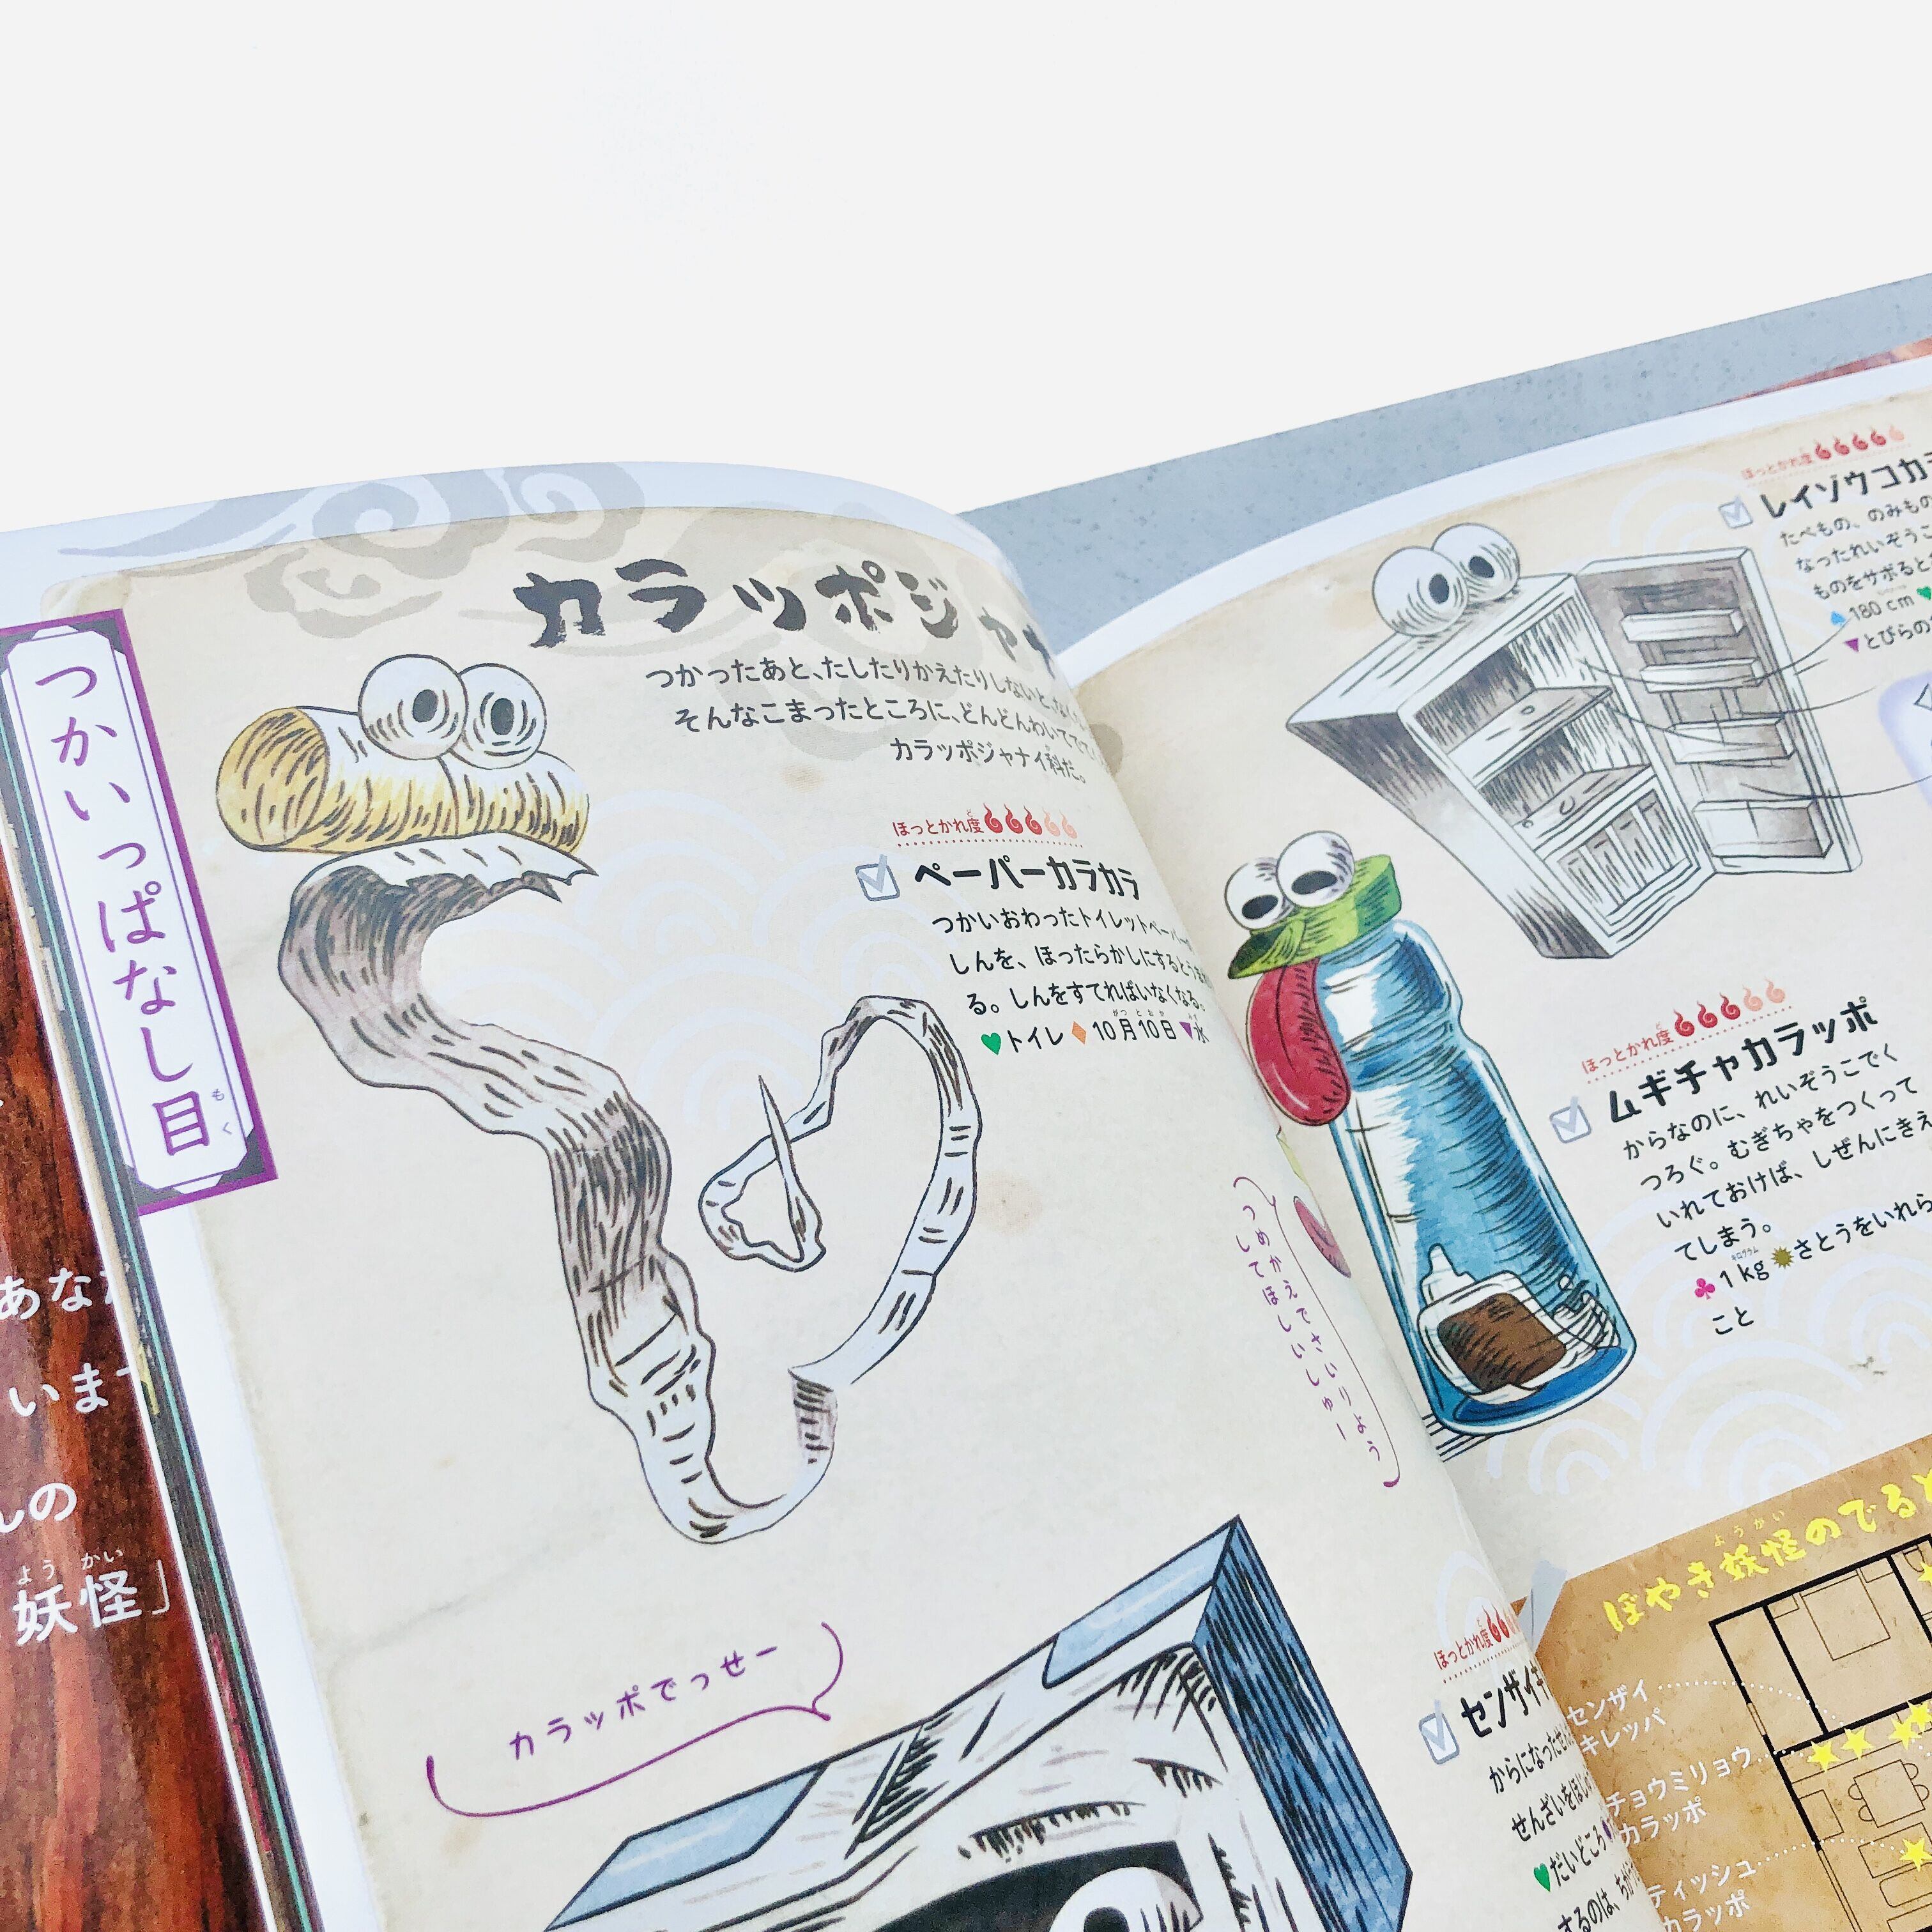 つかいっぱなし目
もく
カラッポジャ
つかったあと、たしたりかえたりしないと、なく
そんなこまったところに、どんどんわいてでて
カラッポジャナイ科だ。
ほっとかれ度
ペーパーカラカラ
つかいおわったトイレットペーパー
しんを、ほったらかしにするとうま
る。しんをすてればいなくなる。
トイレ 10月10日 水
がつ とおか
つめかえでさいりよう
してほしいしゅー
カラッポでっせー
ほっとかれ度
センザイキ
からになったせん
せんざいをほじゅ
だいどころ
するのは、ちが
あな
います
んの
妖怪」
よう かい
ほっとかれ度
レイゾウコカラ
たべもの、のみもの
なったれいぞうこ
ものをサボると
180cm
とびらの
ほっとかれ度
ムギチャカラッポ
からなのに、れいぞうこでく
つろぐ。むぎちゃをつくって
いれておけば、しぜんにきえ
てしまう。
1kg さとうをいれら
キログラム
こと
ぼやき妖怪のでると
ようかい
センザイ
キレッパ
チョウミリョウ
カラッポ
ティッシュ
カラッポ